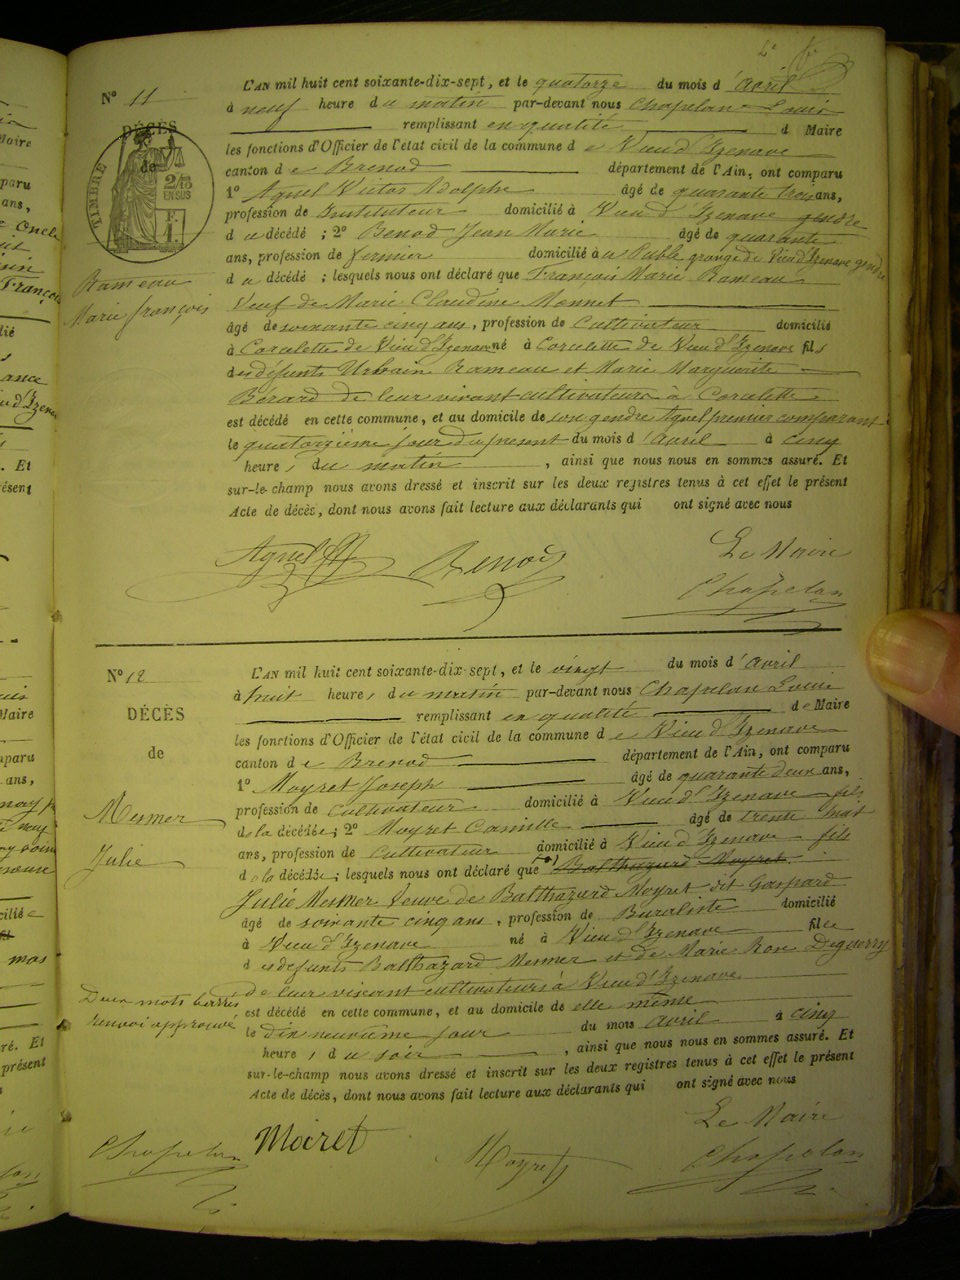 N° 11
DÉCÈS
de
TIMBRE
2/10
EN SUS
F.
1.
Rameau
Marie françois
L'AN mil huit cent soixante-dix-sept, et le quatorze du mois d'avril
à neuf heure du matin par-devant nous Chapelan Louis
remplissant en qualité d Maire
les fonctions d'Officier de l'état civil de la commune de Vieu d'Izenave
canton de Brenod département de l'Ain, ont comparu
1° Agnel Victor Adolphe âgé de quarante trois ans,
profession de Instituteur domicilié à Vieu d'Izenave gendre
du décédé ; 2° Benod Jean Marie âgé de quarante
ans, profession de fermier domicilié à grange de Vieu d'Izenave gendre
du décédé ; lesquels nous ont déclaré que François Marie Rameau
Veuf de Marie Claudine Monnet
âgé de soixante cinq ans, profession de Cultivateur domicilié
à Corcelette de Vieu d'Izenave né à Corcelette de Vieu d'Izenave fils
des défunts Urbain Rameau et Marie Marguerite
Bérard de leur vivant cultivateurs à Corcelette
est décédé en cette commune, et au domicile de son gendre Agnel premier comparant
le quatorzième jour du présent du mois d'avril à cinq
heures du matin, ainsi que nous nous en sommes assuré. Et
sur-le-champ nous avons dressé et inscrit sur les deux registres tenus à cet effet le présent
Acte de décès, dont nous avons fait lecture aux déclarants qui ont signé avec nous
Le Maire
Agnel Benod
Chapelan
N° 12
DÉCÈS
de
Mermer
Julie
L'AN mil huit cent soixante-dix-sept, et le vingt du mois d'avril
à huit heures du matin par-devant nous Chapelan Louis
remplissant en qualité de Maire
les fonctions d'Officier de l'état civil de la commune de Vieu d'Izenave
canton de Brenod département de l'Ain, ont comparu
1° Moyret Joseph âgé de quarante deux ans,
profession de Cultivateur domicilié à Vieu d'Izenave fils
de la décédée ; 2° Moyret Camille âgé de trente huit
ans, profession de Cultivateur domicilié à Vieu d'Izenave fils
de la décédée ; lesquels nous ont déclaré que Balthazard Moyret
Julie Mermer Veuve de Balthazard Moyret dit Gaspard
âgé de soixante cinq ans, profession de Buraliste domicilié
à Vieu d'Izenave né à Vieu d'Izenave fille
des défunts Balthazard Mermer et de Marie Rose
de leur vivant cultivateurs à Vieu d'Izenave
est décédé en cette commune, et au domicile de elle même
le dix neuvième jour du mois avril à cinq
heures du soir, ainsi que nous nous en sommes assuré. Et
sur-le-champ nous avons dressé et inscrit sur les deux registres tenus à cet effet le présent
Acte de décès, dont nous avons fait lecture aux déclarants qui ont signé avec nous
Deux mots barrés
renvoi approuvé
Le Maire
Chapelan Moiret Moyret Chapelan